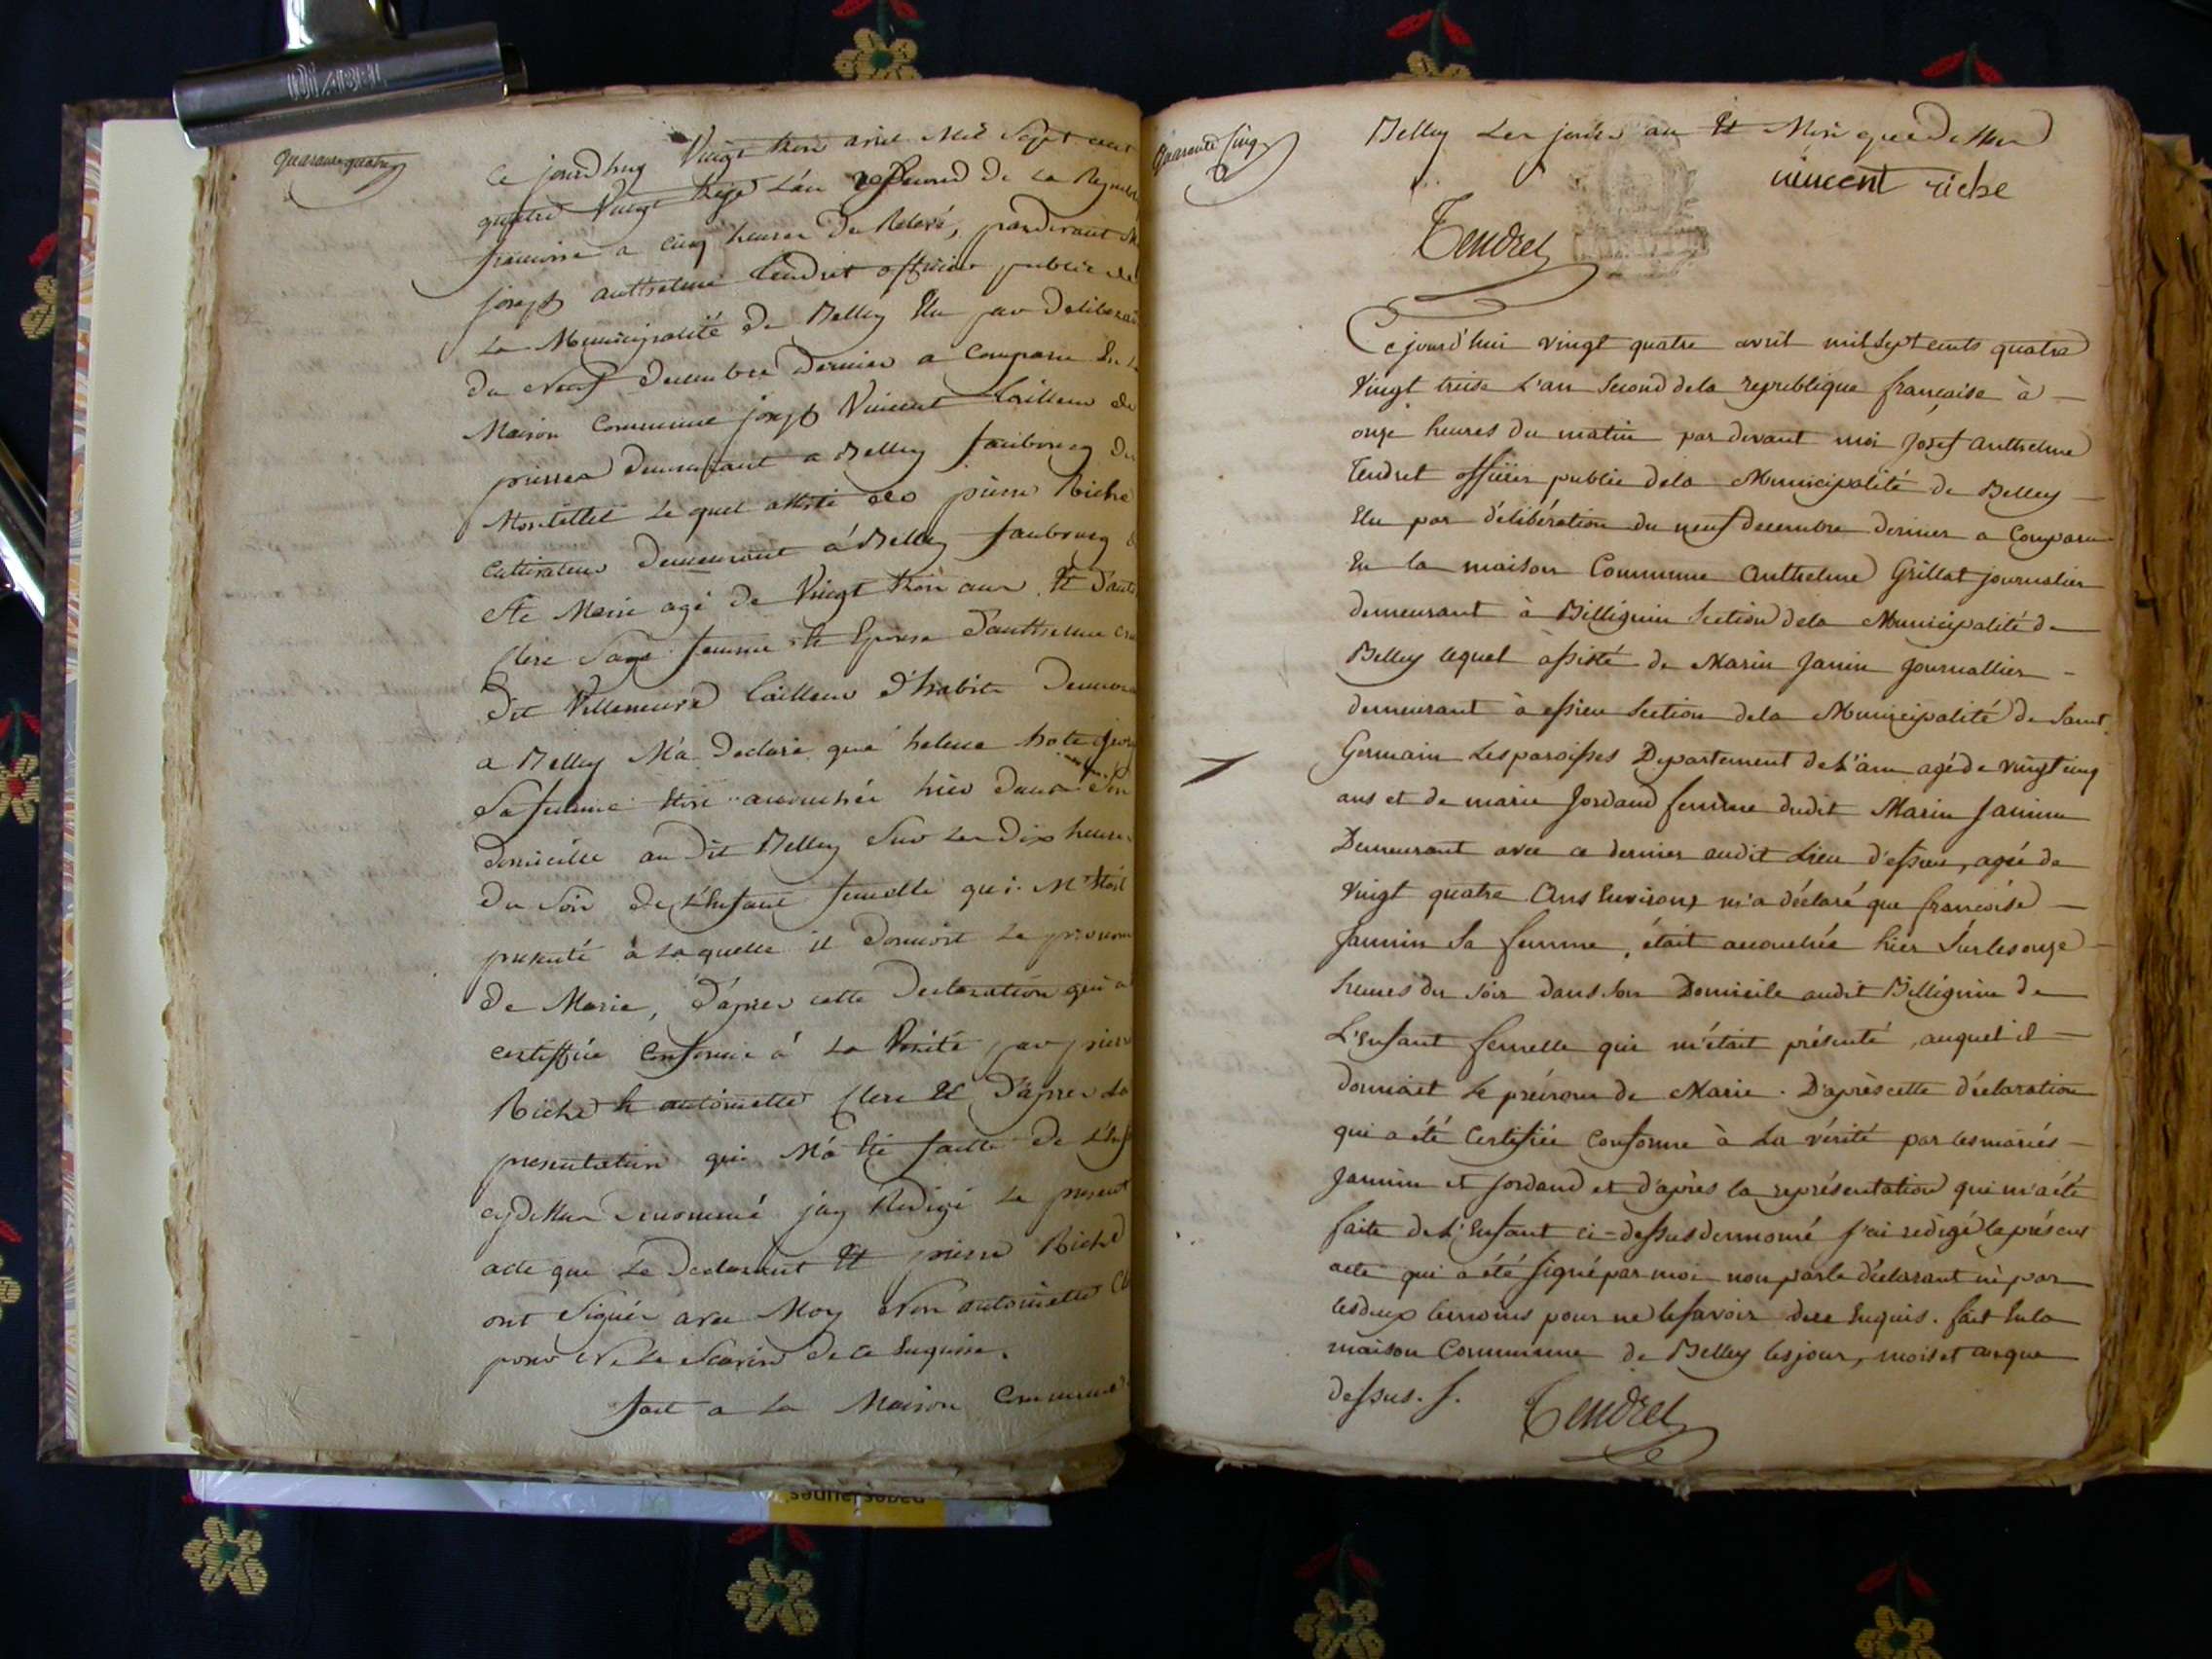 quarante quatre
Ce jourdhuy Vingt trois avril Mil Sept cent
quatre Vingt treize L'an Second De La Republi
francoise a cinq heures De Relevé, pardevant M
joseph anthelme Tendret officier public de
La Municipalité De Belley Elu par Deliberati
Du Neuf Decembre Dernier a Comparu En La
Maison Commune joseph Vincent tailleur de
pierres Demeurant a Belley faubourg Du
Lequel assisté de pierre Riche
Cultivateur Demeurant á Belley faubourg
Ste Marie agé De Vingt trois ans Et D'anto
Clerc Sage femme Et Epouse D'anthelme
Dit Villeneuve tailleur D'habits Demeura
a Belley M'a Declaré que helene
Sa femme Etoit accouchée hier Dans Son
Domicille au Dit Belley Sur Les Dix heures
Du Soir De L'Enfant femelle qui M'Etoit
presenté a Laquelle il Donnoit Le prenom
De Marie, D'apres cette Declaration qui a
certiffiée Conforme á La Verité par pierre
Riche Et antoinette Clerc Et D'apres La
presentation qui M'a Eté faitte De L'Enf
cydessus Denommé jay Redigé Le present
acte que Le Declarant Et pierre Riche
ont Signés avec Moy Non antoinette Cl
pour Ne Le Scavoir De ce Enquise.
fait a La Maison Commune
quarante Cinq
Belley Les jours an Et Mois que Dessus
vincent riche
Tendret
Ce jourd'hui vingt quatre avril mil sept cents quatre
Vingt treise L'an Second de la republique française à
onze heures du matin par devant moi Josef Anthelme
Tendret officier public de la Municipalité de Belley
Elu par délibération du neuf decembre dernier a Comparu
En la maison Commune Anthelme Grillat journalier
demeurant à Billignin Section de la Municipalité de
Belley lequel assisté de Marin Janin Journallier
demeurant à Essieu Section de la Municipalité de Saint
Germain Les paroisses Departement de L'ain agé de vingt cinq
ans et de marie Jordand femme dudit Marin Janin
Demeurant avec ce dernier audit Lieu d'Essieu, agée de
Vingt quatre Ans Environs, m'a déclaré que françoise
Jannin Sa femme, était accouchée hier Sur les onze
heures du Soir dans Son Domicile audit Billignin de
L'Enfant femelle qui m'était présenté, auquel il
donnait Le prénom de Marie. D'après cette déclaration
qui a été Certifiée Conforme à La vérité par les mariés
Jannin et Jordand et d'après la représentation qui m'a été
faite de L'Enfant ci-dessus dénnomé j'ai redigé le présent
acte qui a été signé par moi non par le déclarant ni par
les deux temoins pour ne le savoir de ce Enquis. fait En la
maison Commune de Belley les jour, mois et an que
dessus. f.
Tendret